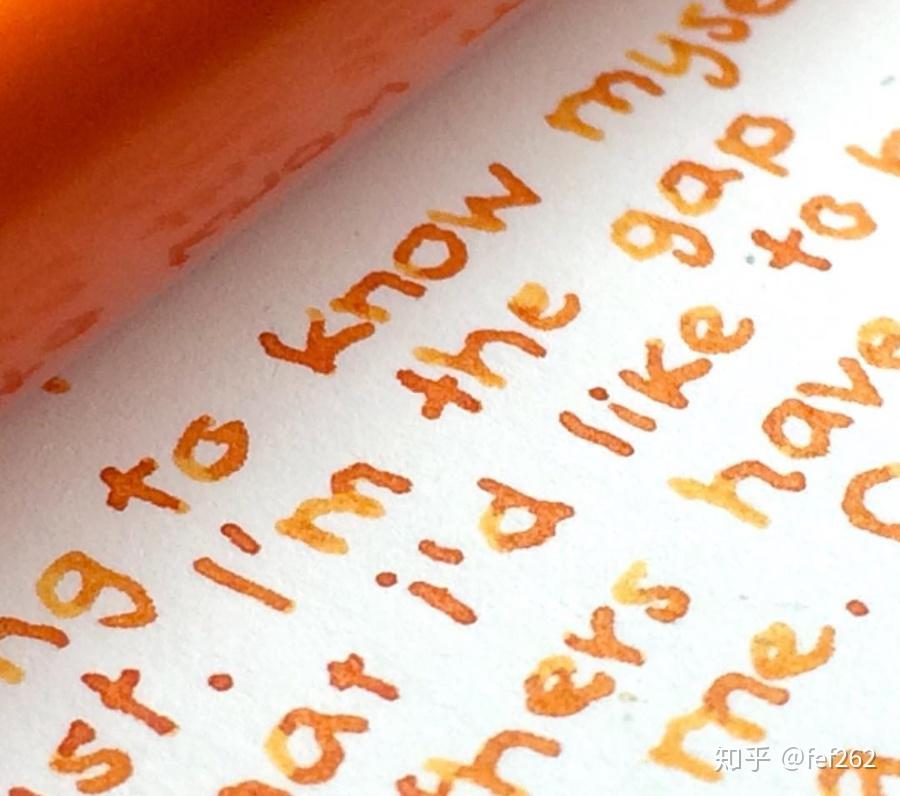 ng to know myse
st. I'm the gap
at i'd like to b
hers have
me.
知乎 @fef262